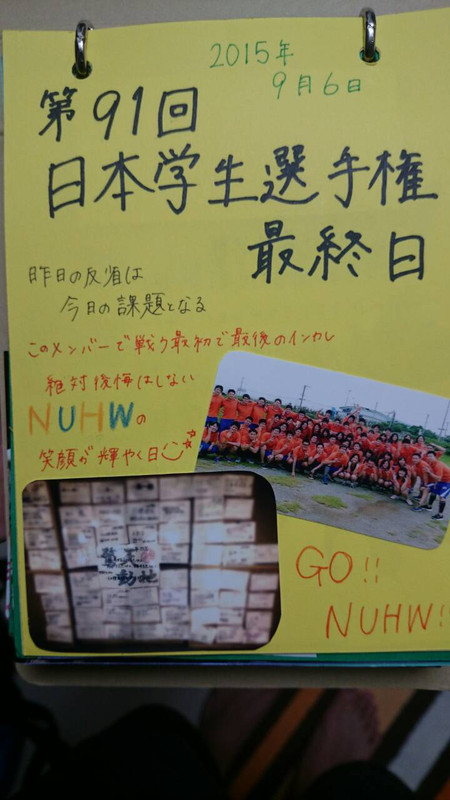 2015年
9月6日
第91回
日本学生選手権
最終日
昨日の反省は
今日の課題となる
このメンバーで戦う最初で最後のインカレ
絶対後悔はしない
NUHWの
笑顔が輝やく日
GO!!
NUHW!